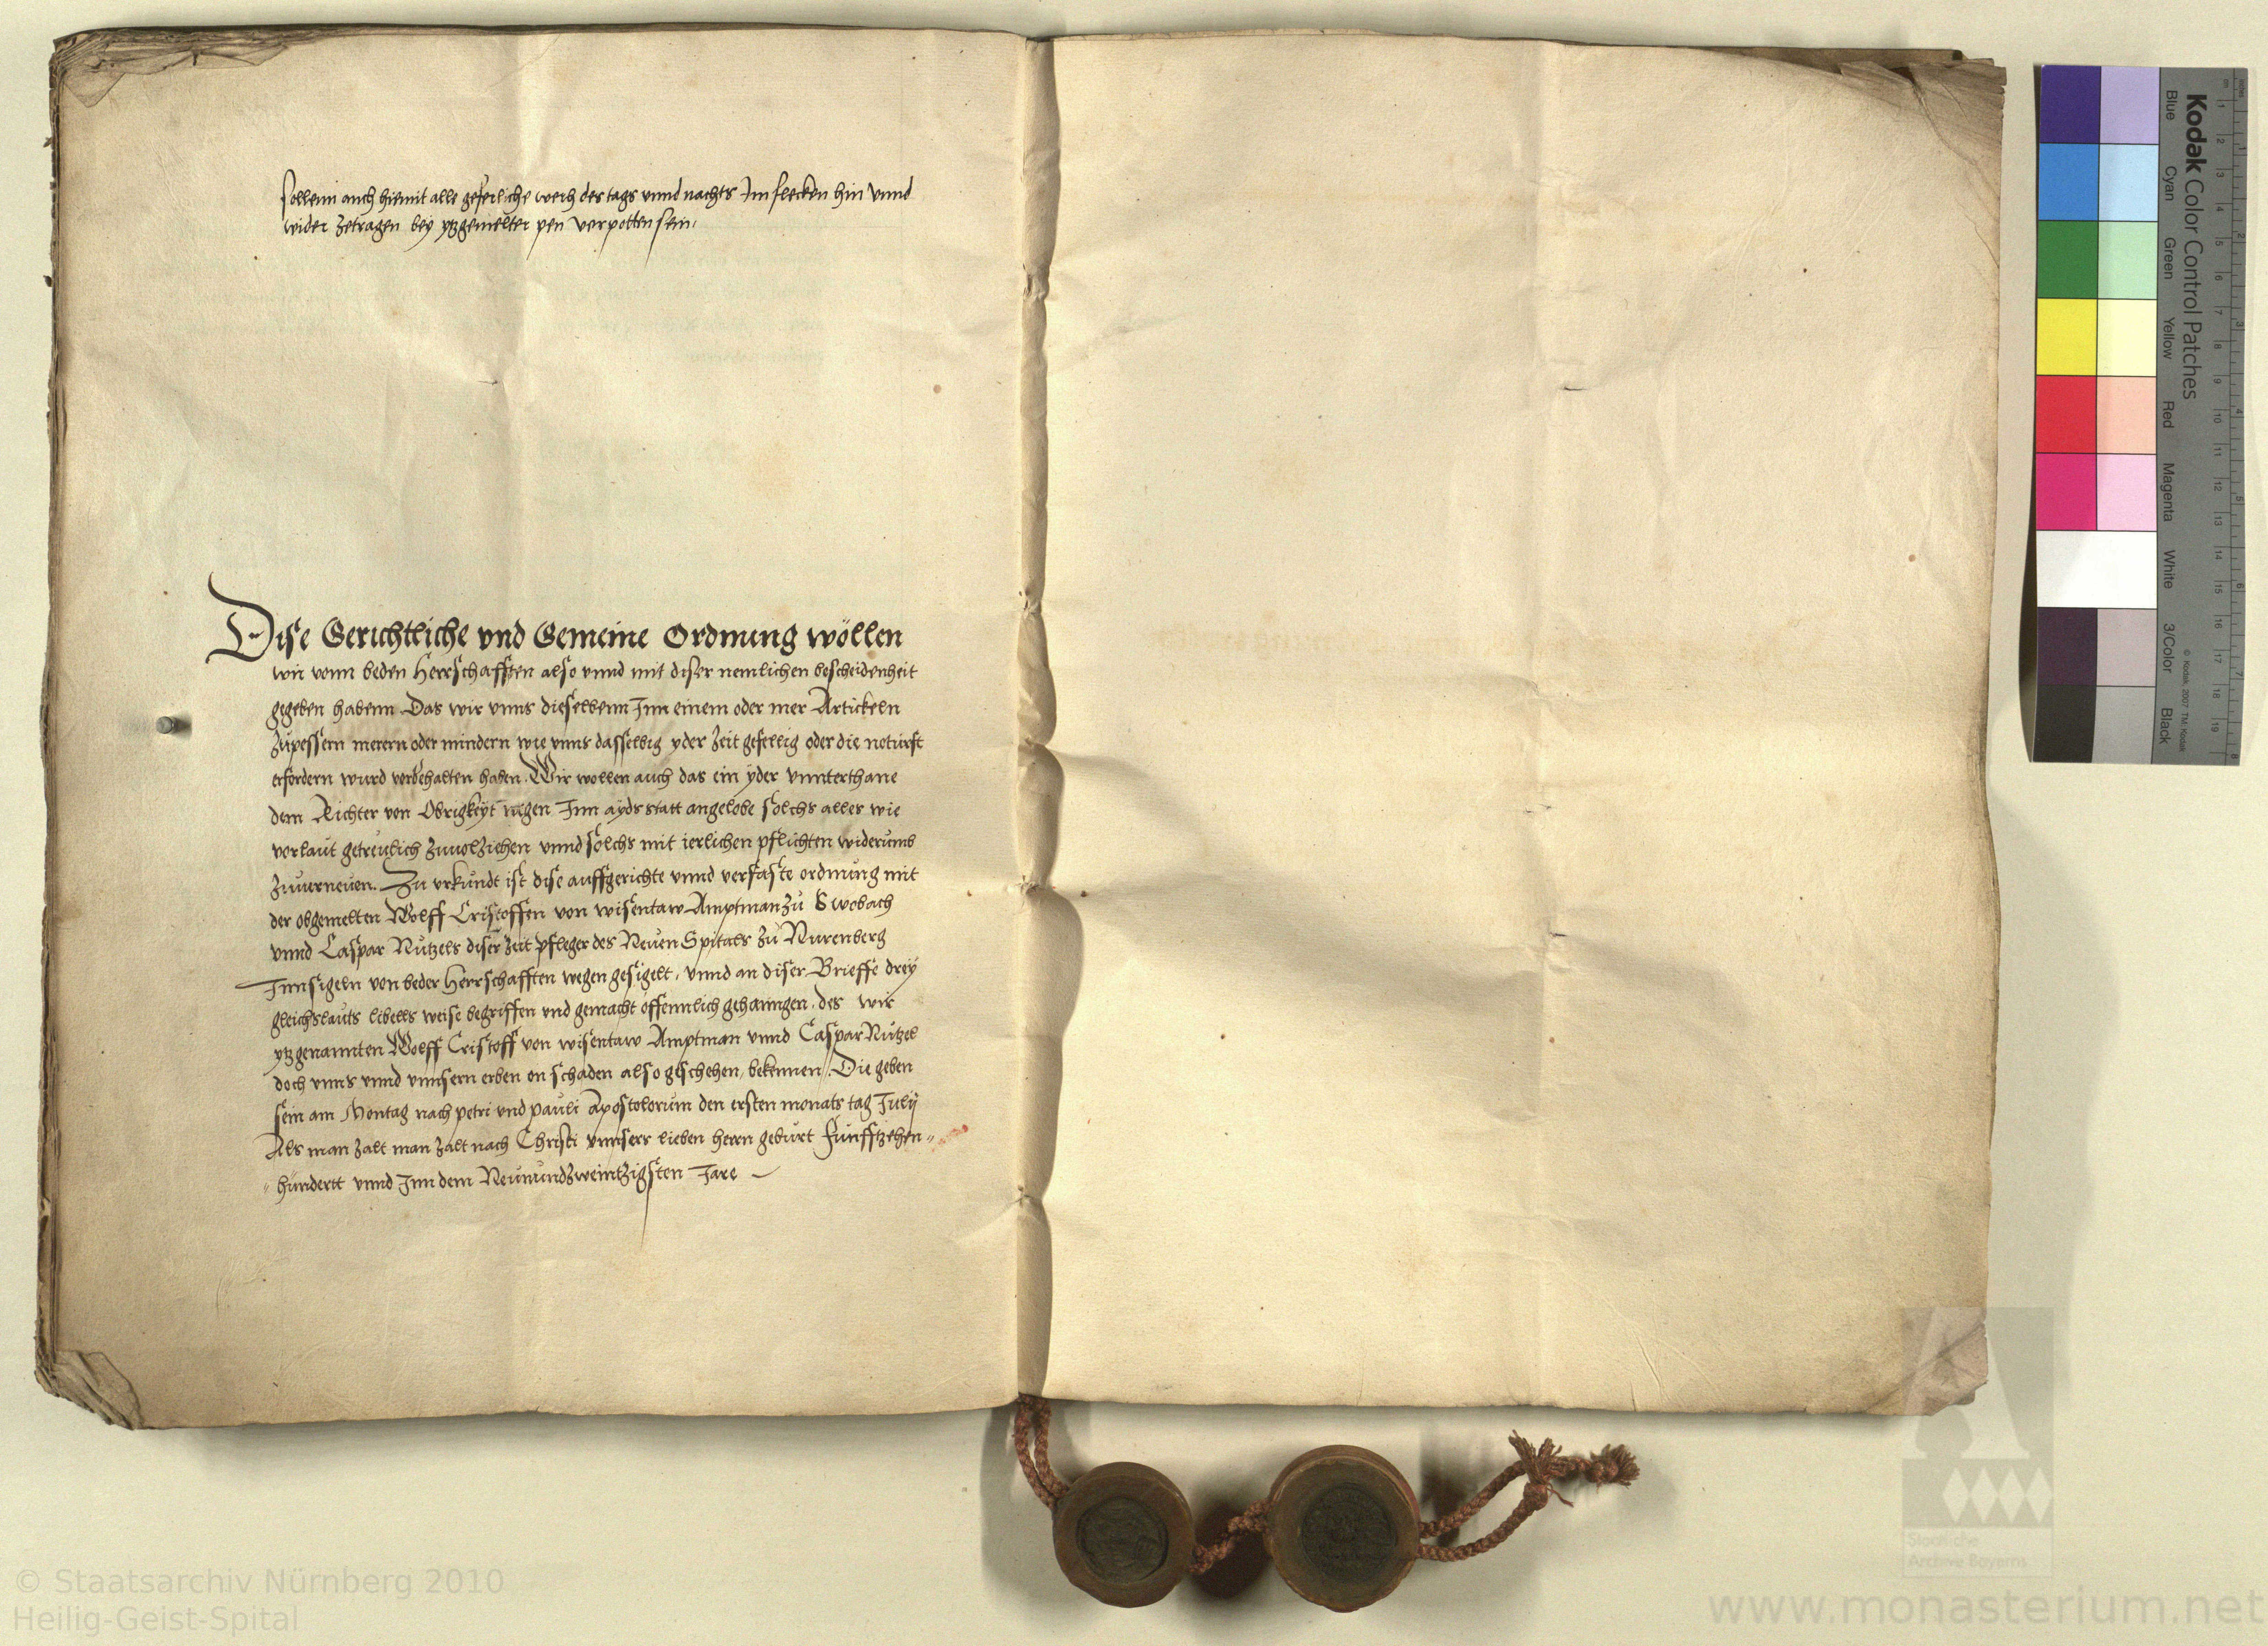 sollenn auch hiemit alle geferliche werh des tags vnnd nachts Im flecken hin vnnd
wider zetragen bey ytzgemelter pen verpotten sein.
Dise Gerichtliche vnd Gemeine Ordnung wöllen
wir vonn beden Herrschafften also vnnd mit diser nemlichen bescheidenheit
gegeben habenn. Das wir vnns dieselbenn Inn einem oder mer Artickeln
zupessern merern oder mindern wie vnns dasselbig yder zeit gefellig oder die noturft
erfordern wurd vorbehalten haben. Wir wollen auch das ein yder vnnterthane
dem Richter von Obrigkeyt wegen Inn ayds statt angelobe solchs alles wie
vorlaut getreulich zuuolziehen vnnd solchs mit ierlichen pflichten widerumb
zuuerneuen. Zu vrkundt ist dise auffgerichte vnnd verfaste ordnung mit
der obgemelten Wolff Cristoffen von wisentaw Amptman zu Swobach
vnnd Caspar Nutzels diser zeit pfleger des Neuen Spitals zu Nurenberg
Innsigeln von beder Herrschafften wegen gesigelt, vnnd an diser Brieffe drey
gleichslauts libells weise begriffen vnd gemacht offennlich gehanngen. des wir
ytzgenannten Wolff Cristoff von wisentaw Amptman vnnd Caspar Nutzel
doch vnns vnnd vnnsern erben on schaden also geschehen, bekennen. Die geben
sein am Montag nach petri vnd pauli Apostolorum den ersten monats tag Julij
Als man zalt man zalt nach Christi vnnsers lieben herrn geburt funfftzehen "
" hundertt vnnd Inn dem Neunundzweintzigsten Jare
Kodak Color Control Patches
Blue Cyan Green Yellow Red Magenta White 3/Color Black
© Kodak, 2007 TM: Kodak
© Staatsarchiv Nürnberg 2010
Heilig-Geist-Spital
Staatliche
Archive Bayerns
www.monasterium.net